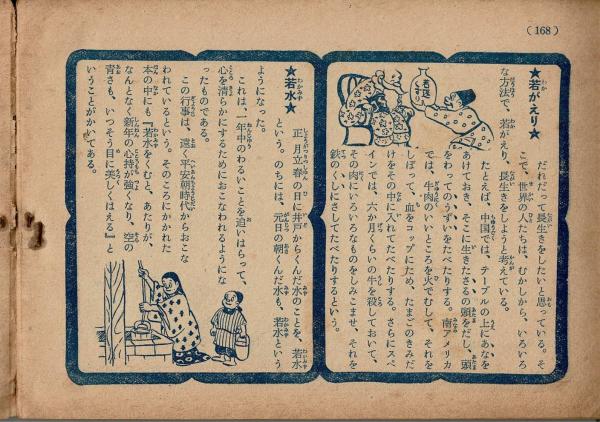 (168)
★若がえり★
だれだって長生きをしたいと思っている。そ
こで、世界の人たちは、むかしから、いろいろ
な方法で、若がえり、長生きをしようと考えている。
たとえば、中国では、テーブルの上にあなを
あけておき、そこに生きたさるの頭をだし、頭
をわってのうずいをたべたりする。南アメリカ
では、牛肉のいいところを火でむして、それを
しぼって、血をコップにため、たまごのきみだ
けをその中に入れてたべたりする。さらにスペ
インでは、六か月くらいの牛を殺しておいて、
その肉にいろいろなものをしみこませ、それを
鉄のくしにさしてたべたりするという。
若返
★若水★
正月立春の日に井戸からくんだ水のことを、若水
という。のちには、元日の朝くんだ水も、若水という
ようになった。
これは、一年中のわるいことを追いはらって、
心を清らかにするためにおこなわれるようにな
ったものである。
この行事は、遠く平安朝時代からおこな
われているという。そのころにかかれた
本の中にも『若水をくむと、あたりが
なんとなく新年の心持が強くなり、空の
青さも、いっそう目に美しくはえる』と
いうことがかいてある。